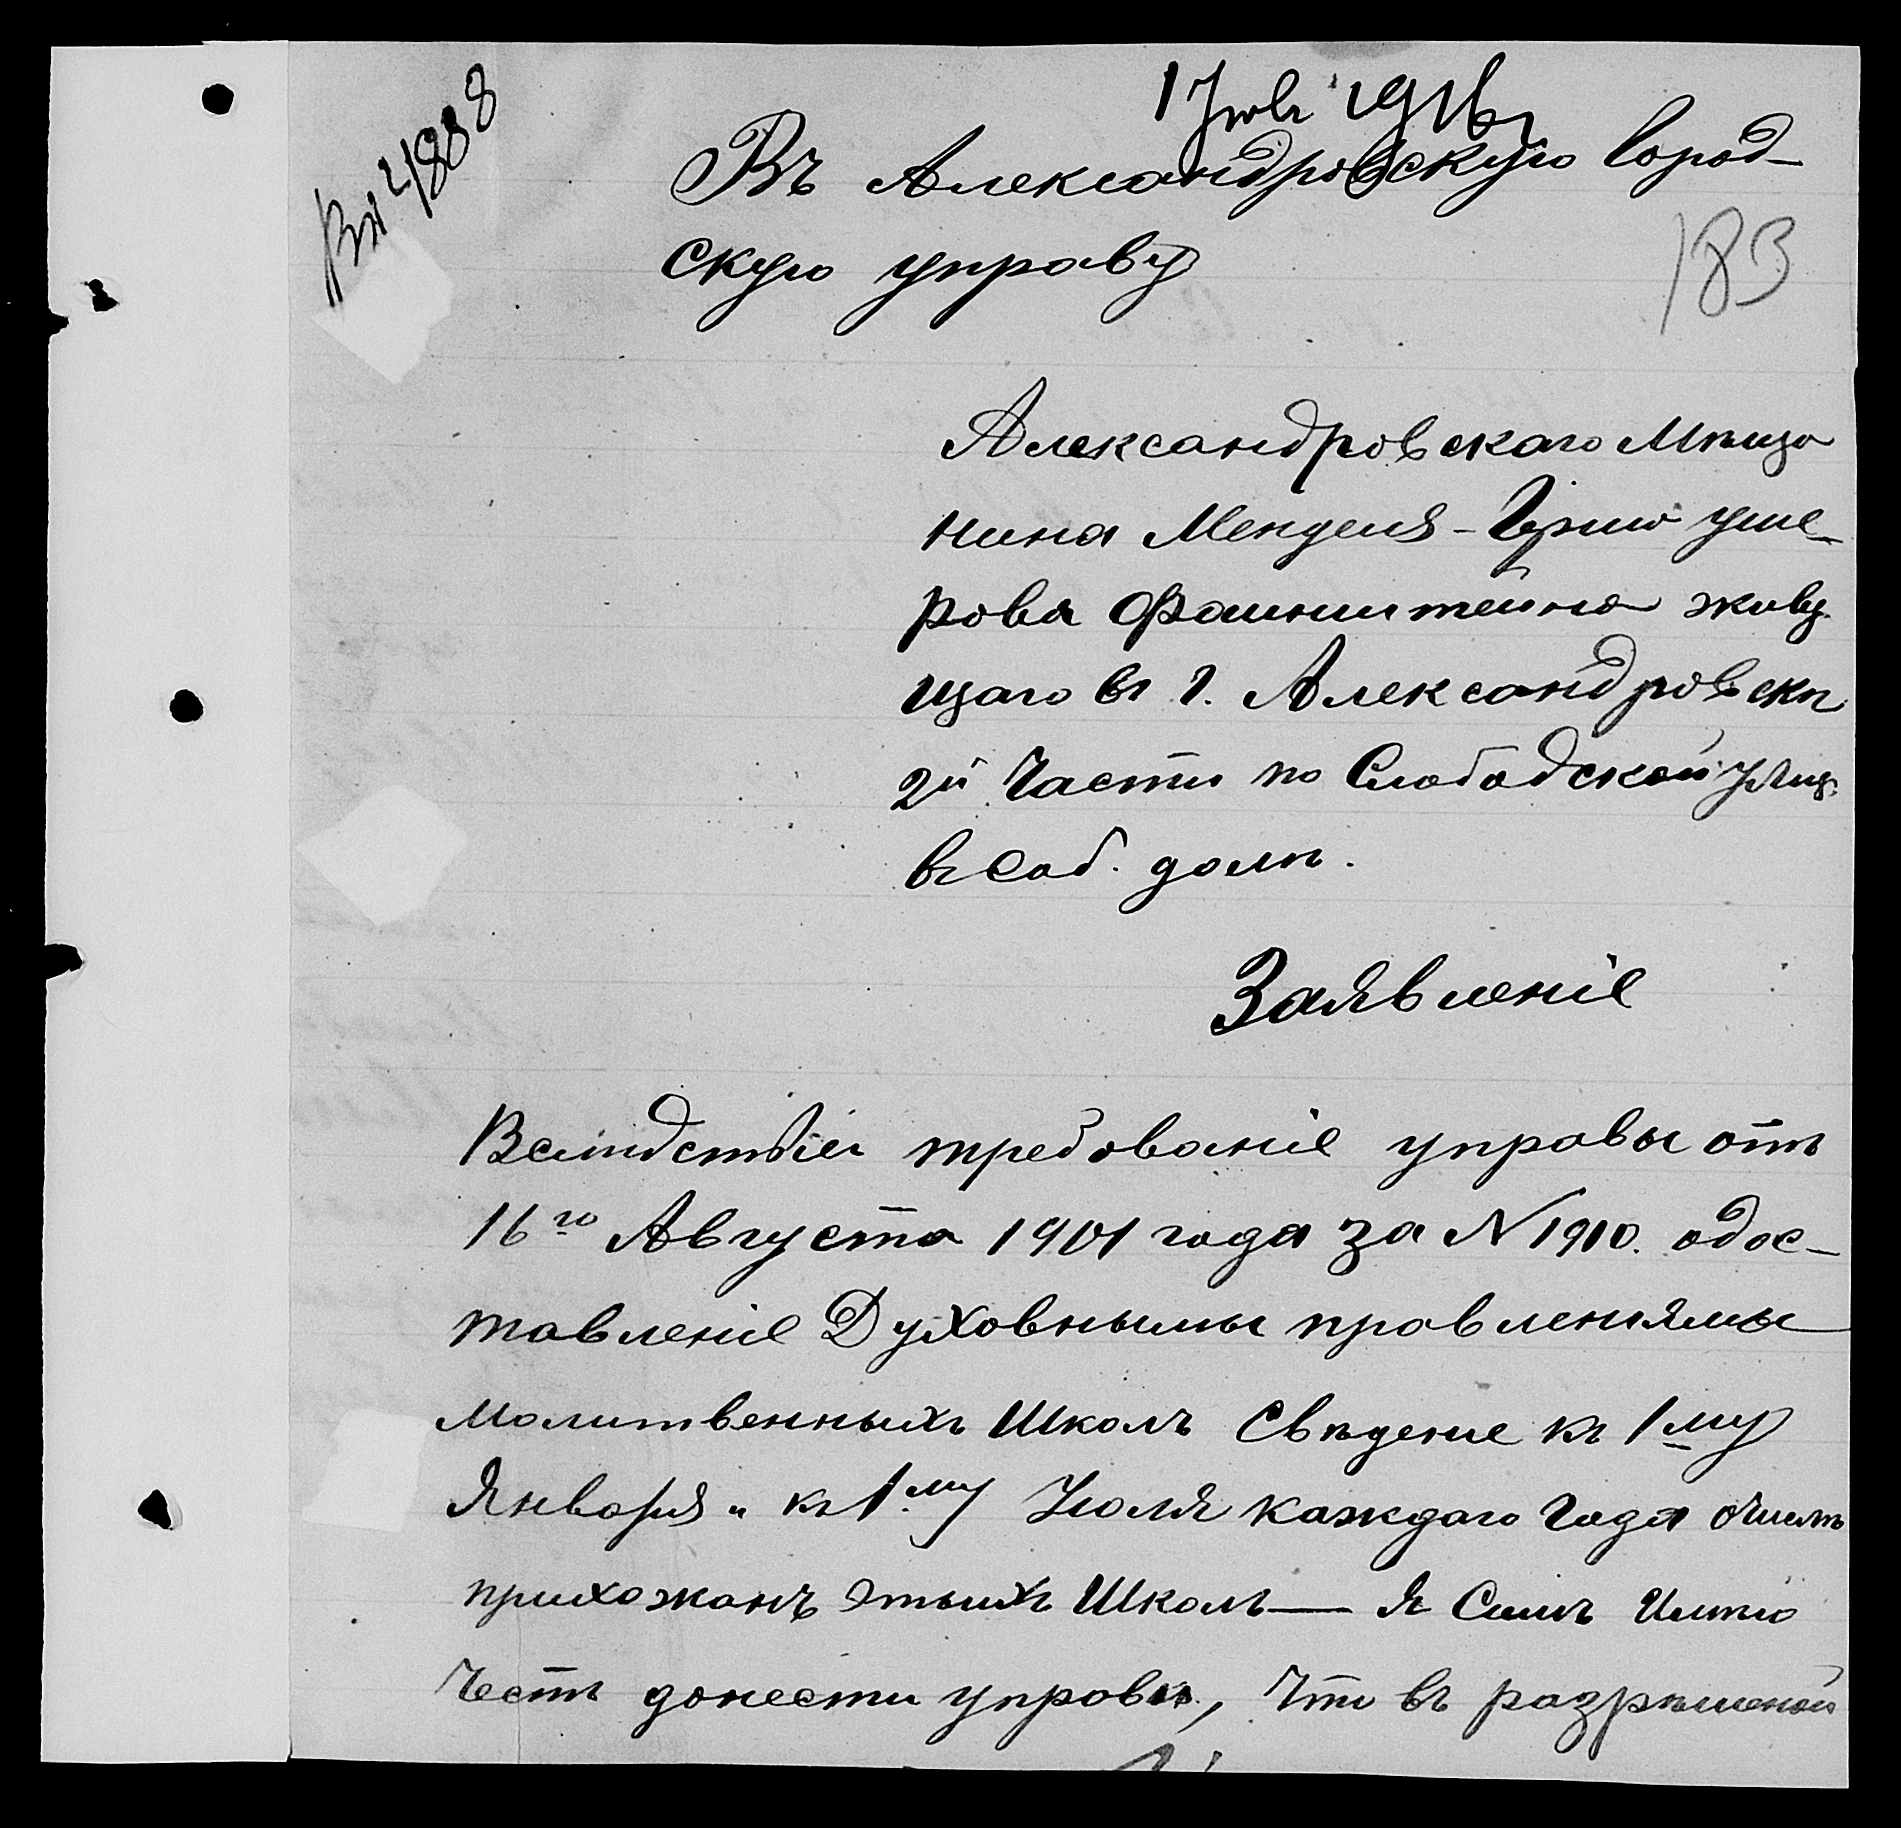 Вх 4888
1 Июля 1916 г
Въ Александровскую Город-
скую управу
183
Александровскаго Мѣща
нина Менделя-Гершо Уше-
рова Файнштейна живу
щаго въ г. Александровскѣ
2й Части по Слободской улиц.
въ Соб. домѣ.
Заявленіе
Вслѣдствіи требованіе управы отъ
16го Августа 1901 года за N 1910. одос-
тавленіе Духовнымы правленямы
молитвенныхъ Школъ Свѣдение къ 1му
Января и къ 1му Июля каждаго года очислѣ
прихожанъ этыихъ Школъ — я Симъ Имѣю
Честь донести управѣ, Что въ разрѣшеной